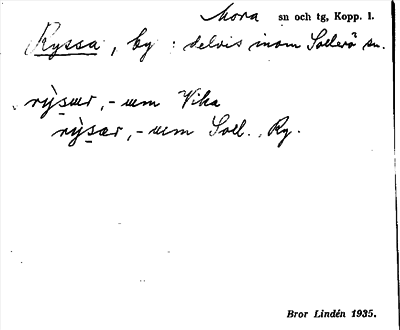 Mora sn och tg, Kopp. l.
Ryssa, by : delvis inom Sollerö sn.
rỳsær, -um Vika
rỳsær, -um Soll., Ry.
Bror Lindén 1935.